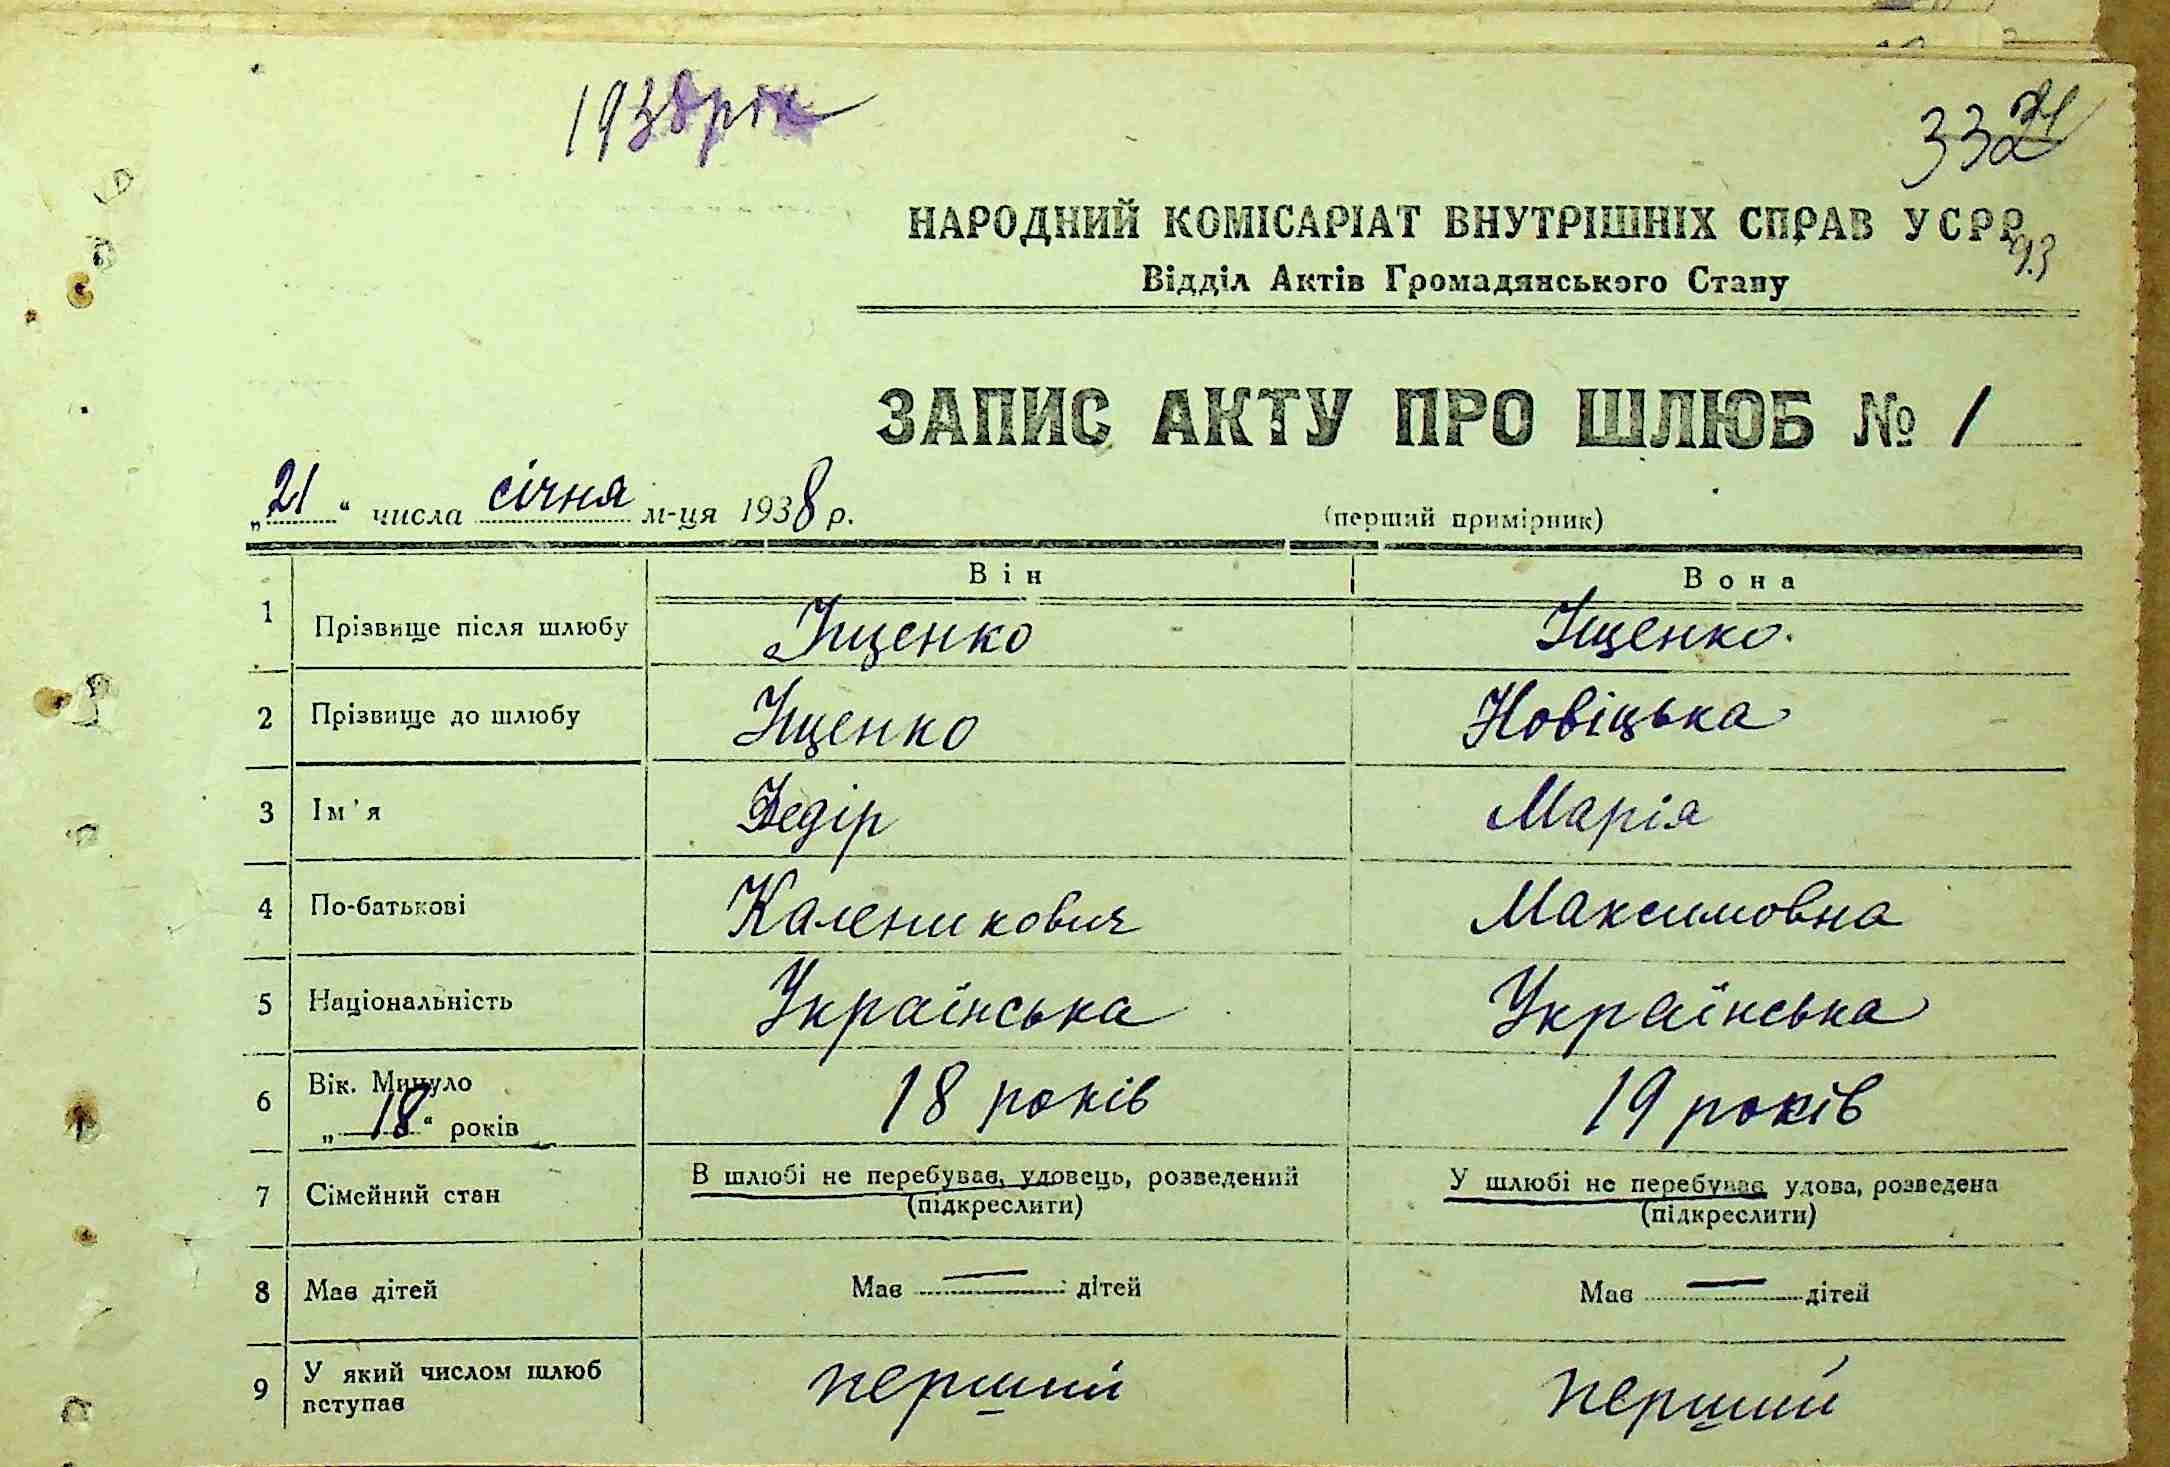 1938 рік
332
93
НАРОДНИЙ КОМІСАРІАТ ВНУТРІШНІХ СПРАВ УСРР
Відділ Актів Громадянського Стану
ЗАПИС АКТУ ПРО ШЛЮБ № 1
„21“ числа січня м-ця 1938 р. (перший примірник)
Він Вона
1 Прізвище після шлюбу Іщенко Іщенко.
2 Прізвище до шлюбу Іщенко Новіцька
3 Ім'я Федір Марія
4 По-батькові Каленикович Максимовна
5 Національність Українська Українська
6 Вік. Минуло „18“ років 18 років 19 років
7 Сімейний стан В шлюбі не перебуває, удовець, розведений (підкреслити) У шлюбі не перебуває удова, розведена (підкреслити)
8 Має дітей Має — дітей Має — дітей
9 У який числом шлюб вступає перший перший